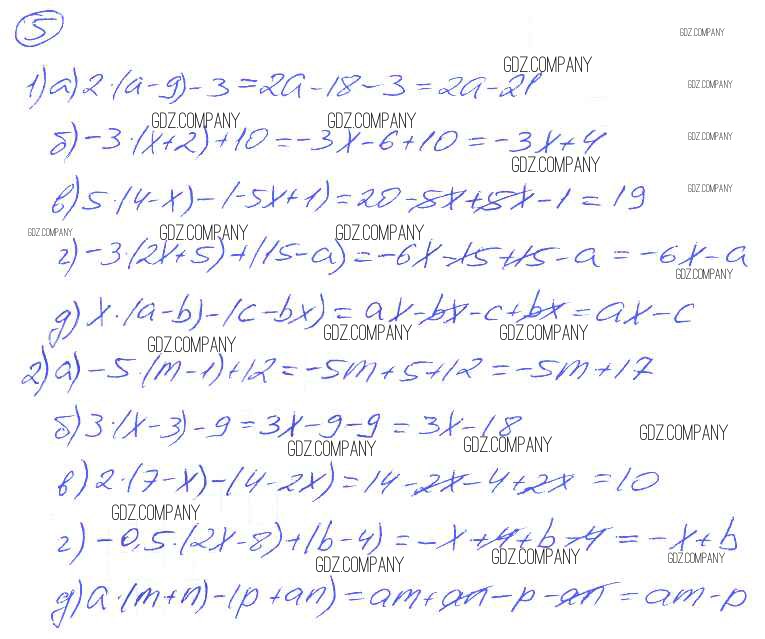 5
GDZ.COMPANY
GDZ.COMPANY
1) а) 2·(a-9)-3=2a-18-3=2a-21
GDZ.COMPANY
GDZ.COMPANY GDZ.COMPANY
б) -3·(x+2)+10=-3x-6+10=-3x+4
GDZ.COMPANY
GDZ.COMPANY
в) 5·(4-x)-(-5x+1)=20-5x+5x-1=19
GDZ.COMPANY
GDZ.COMPANY GDZ.COMPANY GDZ.COMPANY
г) -3·(2x+5)+(15-a)=-6x-15+15-a=-6x-a
GDZ.COMPANY
д) x·(a-b)-(c-bx)=ax-bx-c+bx=ax-c
GDZ.COMPANY GDZ.COMPANY GDZ.COMPANY
2) а) -5·(m-1)+12=-5m+5+12=-5m+17
б) 3·(x-3)-9=3x-9-9=3x-18
GDZ.COMPANY GDZ.COMPANY GDZ.COMPANY
в) 2·(7-x)-(4-2x)=14-2x-4+2x=10
GDZ.COMPANY
г) -0,5·(2x-8)+(b-4)=-x+4+b-4=-x+b
GDZ.COMPANY GDZ.COMPANY GDZ.COMPANY
д) a·(m+n)-(p+an)=am+an-p-an=am-p